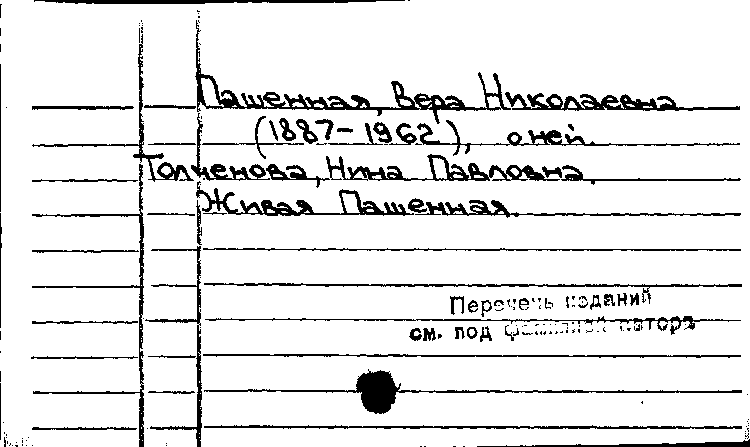 Пашенная, Вера Николаевна
(1887-1962), о ней.
Толченова, Нина Павловна.
Живая Пашенная.
Перечень изданий
см. под фамилией автора